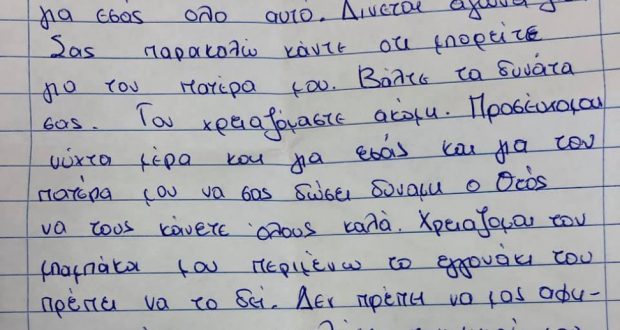 για εσάς όλο αυτό. Δίνεται αγώνα
Σας παρακαλώ κάντε οτι μπορείτε
για τον πατέρα μου. Βάλτε τα δυνατα
σας. Τον χρειαζόμαστε ακόμη. Προσεύχομαι
νύχτα μέρα και για εσάς και για τον
πατέρα μου να σας δώσει δύναμη ο Θεός
να τους κάνετε όλους καλά. Χρειαζομαι τον
μπαμπάκα μου περιμένω το εγγονάκι του
πρέπει να το δεί. Δεν πρέπει να μας αφή-